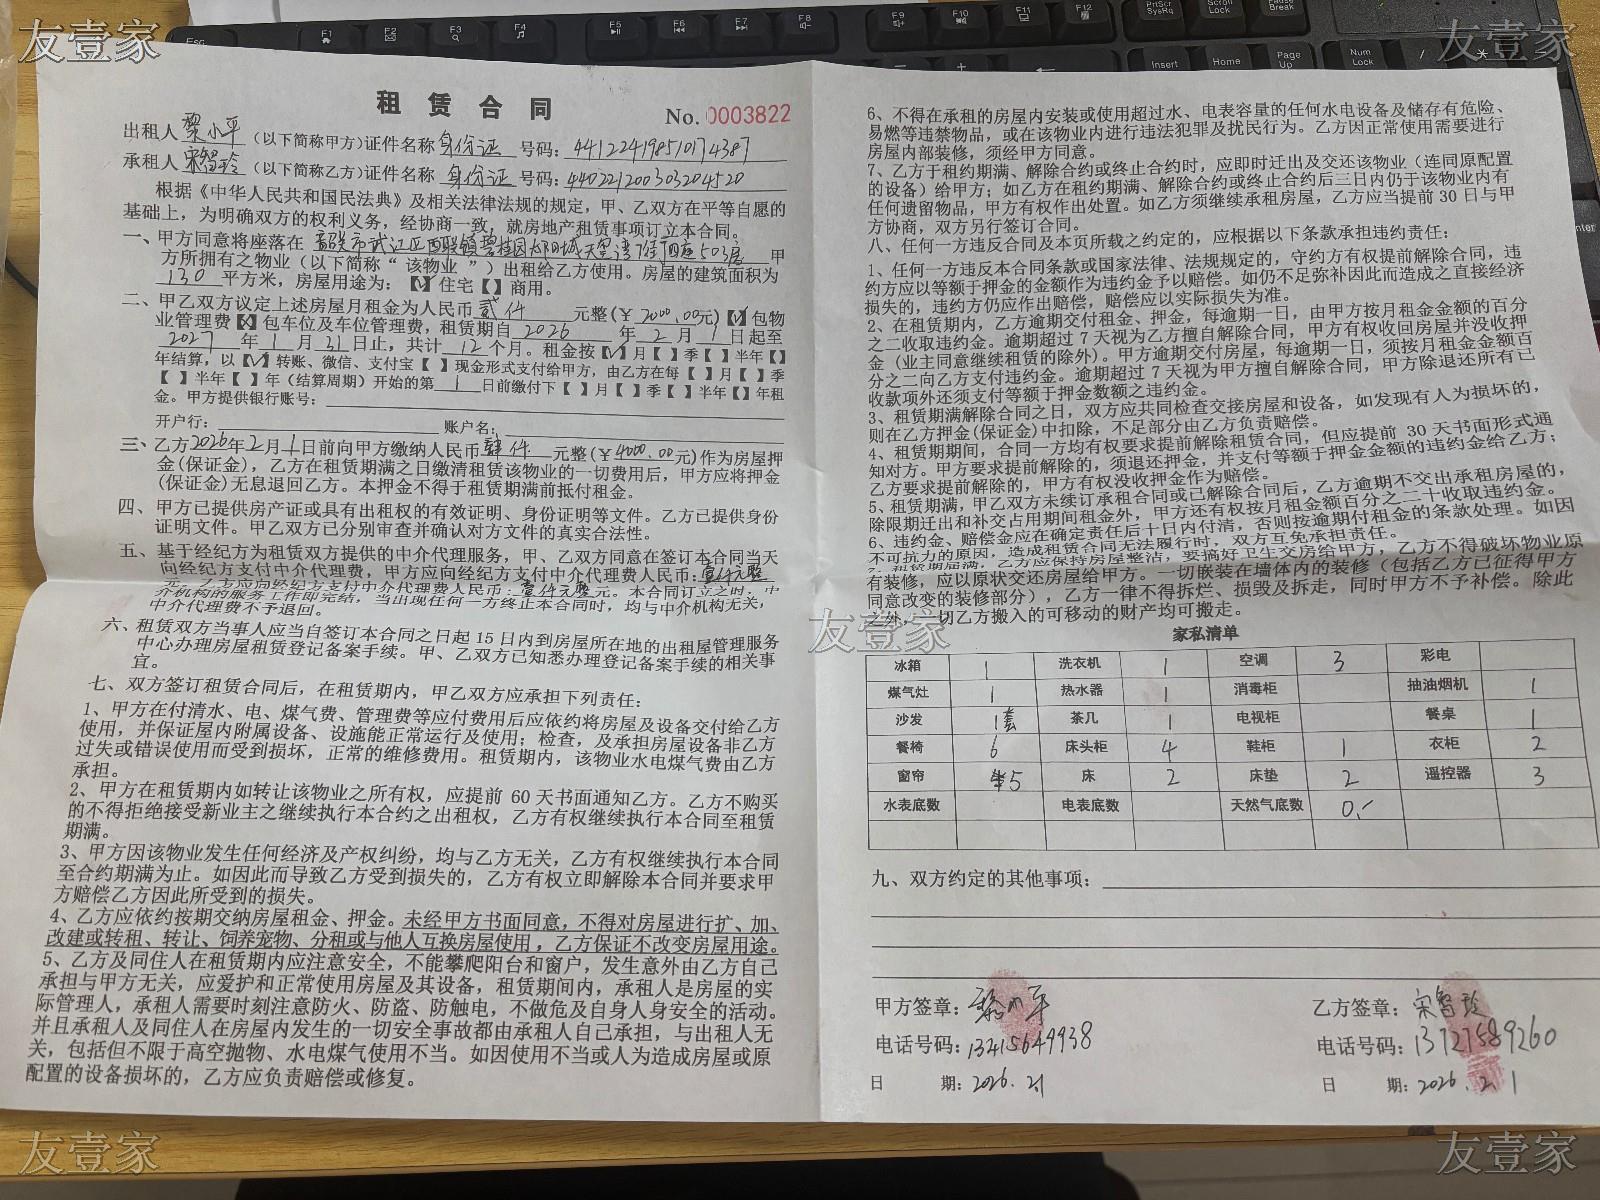 友壹家
友壹家
租赁合同
No. 0003822
出租人 黎小平 (以下简称甲方)证件名称 身份证 号码: 441224198510174387
承租人 宋智玲 (以下简称乙方)证件名称 身份证 号码: 440221200303204520
根据《中华人民共和国民法典》及相关法律法规的规定，甲、乙双方在平等自愿的
基础上，为明确双方的权利义务，经协商一致，就房地产租赁事项订立本合同。
一、甲方同意将座落在 韶关市武江区西联镇碧桂园太阳城 503房 甲
方所拥有之物业（以下简称“该物业”）出租给乙方使用。房屋的建筑面积为
130 平方米，房屋用途为：【√】住宅【 】商用。
二、甲乙双方议定上述房屋月租金为人民币 贰仟 元整(￥ 2000.00元)【√】包物
业管理费【X】包车位及车位管理费，租赁期自 2026 年 2 月 1 日起至
2027 年 1 月 31 日止，共计 12 个月。租金按【√】月【 】季【 】半年【 】
年结算，以【√】转账、微信、支付宝【 】现金形式支付给甲方，由乙方在每【 】月【 】季
【 】半年【 】年（结算周期）开始的第 1 日前缴付下【 】月【 】季【 】半年【 】年租
金。甲方提供银行账号：
开户行： 账户名：
三、乙方 2026 年 2 月 1 日前向甲方缴纳人民币 肆仟 元整(￥ 4000.00 元)作为房屋押
金(保证金)，乙方在租赁期满之日缴清租赁该物业的一切费用后，甲方应将押金
(保证金)无息退回乙方。本押金不得于租赁期满前抵付租金。
四、甲方已提供房产证或具有出租权的有效证明、身份证明等文件。乙方已提供身份
证明文件。甲乙双方已分别审查并确认对方文件的真实合法性。
五、基于经纪方为租赁双方提供的中介代理服务，甲、乙双方同意在签订本合同当天
向经纪方支付中介代理费，甲方应向经纪方支付中介代理费人民币：壹仟元整
元，乙方应向经纪方支付中介代理费人民币：壹仟元整元。本合同订立之时，中
介机构的服务工作即完结，当出现任何一方终止本合同时，均与中介机构无关，
中介代理费不予退回。
六、租赁双方当事人应当自签订本合同之日起 15 日内到房屋所在地的出租屋管理服务
中心办理房屋租赁登记备案手续。甲、乙双方已知悉办理登记备案手续的相关事
宜。
七、双方签订租赁合同后，在租赁期内，甲乙双方应承担下列责任：
1、甲方在付清水、电、煤气费、管理费等应付费用后应依约将房屋及设备交付给乙方
使用，并保证屋内附属设备、设施能正常运行及使用；检查，及承担房屋设备非乙方
过失或错误使用而受到损坏，正常的维修费用。租赁期内，该物业水电煤气费由乙方
承担。
2、甲方在租赁期内如转让该物业之所有权，应提前 60 天书面通知乙方。乙方不购买
的不得拒绝接受新业主之继续执行本合约之出租权，乙方有权继续执行本合同至租赁
期满。
3、甲方因该物业发生任何经济及产权纠纷，均与乙方无关，乙方有权继续执行本合同
至合约期满为止。如因此而导致乙方受到损失的，乙方有权立即解除本合同并要求甲
方赔偿乙方因此所受到的损失。
4、乙方应依约按期交纳房屋租金、押金。未经甲方书面同意，不得对房屋进行扩、加、
改建或转租、转让、饲养宠物、分租或与他人互换房屋使用，乙方保证不改变房屋用途。
5、乙方及同住人在租赁期内应注意安全，不能攀爬阳台和窗户，发生意外由乙方自己
承担与甲方无关，应爱护和正常使用房屋及其设备，租赁期间内，承租人是房屋的实
际管理人，承租人需要时刻注意防火、防盗、防触电，不做危及自身人身安全的活动。
并且承租人及同住人在房屋内发生的一切安全事故都由承租人自己承担，与出租人无
关，包括但不限于高空抛物、水电煤气使用不当。如因使用不当或人为造成房屋或原
配置的设备损坏的，乙方应负责赔偿或修复。
6、不得在承租的房屋内安装或使用超过水、电表容量的任何水电设备及储存有危险、
易燃等违禁物品，或在该物业内进行违法犯罪及扰民行为。乙方因正常使用需要进行
房屋内部装修，须经甲方同意。
7、乙方于租约期满、解除合约或终止合约时，应即时迁出及交还该物业（连同原配置
的设备）给甲方；如乙方在租约期满、解除合约或终止合约后三日内仍于该物业内有
任何遗留物品，甲方有权作出处置。如乙方须继续承租房屋，乙方应当提前 30 日与甲
方协商，双方另行签订合同。
八、任何一方违反合同及本页所载之约定的，应根据以下条款承担违约责任：
1、任何一方违反本合同条款或国家法律、法规规定的，守约方有权提前解除合同，违
约方应以等额于押金的金额作为违约金予以赔偿。如仍不足弥补因此而造成之直接经济
损失的，违约方仍应作出赔偿，赔偿应以实际损失为准。
2、在租赁期内，乙方逾期交付租金、押金，每逾期一日，由甲方按月租金金额的百分
之二收取违约金。逾期超过 7 天视为乙方擅自解除合同，甲方有权收回房屋并没收押
金（业主同意继续租赁的除外）。甲方逾期交付房屋，每逾期一日，须按月租金金额百
分之二向乙方支付违约金。逾期超过 7 天视为甲方擅自解除合同，甲方除退还所有已
收款项外还须支付等额于押金数额之违约金。
3、租赁期满解除合同之日，双方应共同检查交接房屋和设备，如发现有人为损坏的，
则在乙方押金(保证金)中扣除，不足部分由乙方负责赔偿。
4、租赁期期间，合同一方均有权要求提前解除租赁合同，但应提前 30 天书面形式通
知对方。甲方要求提前解除的，须退还押金，并支付等额于押金金额的违约金给乙方；
乙方要求提前解除的，甲方有权没收押金作为赔偿。
5、租赁期满，甲乙双方未续订承租合同或已解除合同后，乙方逾期不交出承租房屋的，
除限期迁出和补交占用期间租金外，甲方还有权按月租金额百分之二十收取违约金。
6、违约金、赔偿金应在确定责任后十日内付清，否则按逾期付租金的条款处理。如因
不可抗力的原因，造成租赁合同无法履行时，双方互免承担责任。
7、租赁期届满，乙方应保持房屋整洁，要搞好卫生交房给甲方，乙方不得破坏物业原
有装修，应以原状交还房屋给甲方。一切嵌装在墙体内的装修（包括乙方已征得甲方
同意改变的装修部分），乙方一律不得拆烂、损毁及拆走，同时甲方不予补偿。除此
之外，一切乙方搬入的可移动的财产均可搬走。
友壹家
家私清单
冰箱 1 洗衣机 1 空调 3 彩电
煤气灶 1 热水器 1 消毒柜 抽油烟机 1
沙发 1套 茶几 1 电视柜 餐桌 1
餐椅 6 床头柜 4 鞋柜 1 衣柜 2
窗帘 5 床 2 床垫 2 遥控器 3
水表底数 电表底数 天然气底数 0.-
九、双方约定的其他事项：
甲方签章：黎小平 乙方签章：宋智玲
电话号码：13415649938 电话号码：13727589260
日 期：2026.2.1 日 期：2026.2.1
友壹家
友壹家